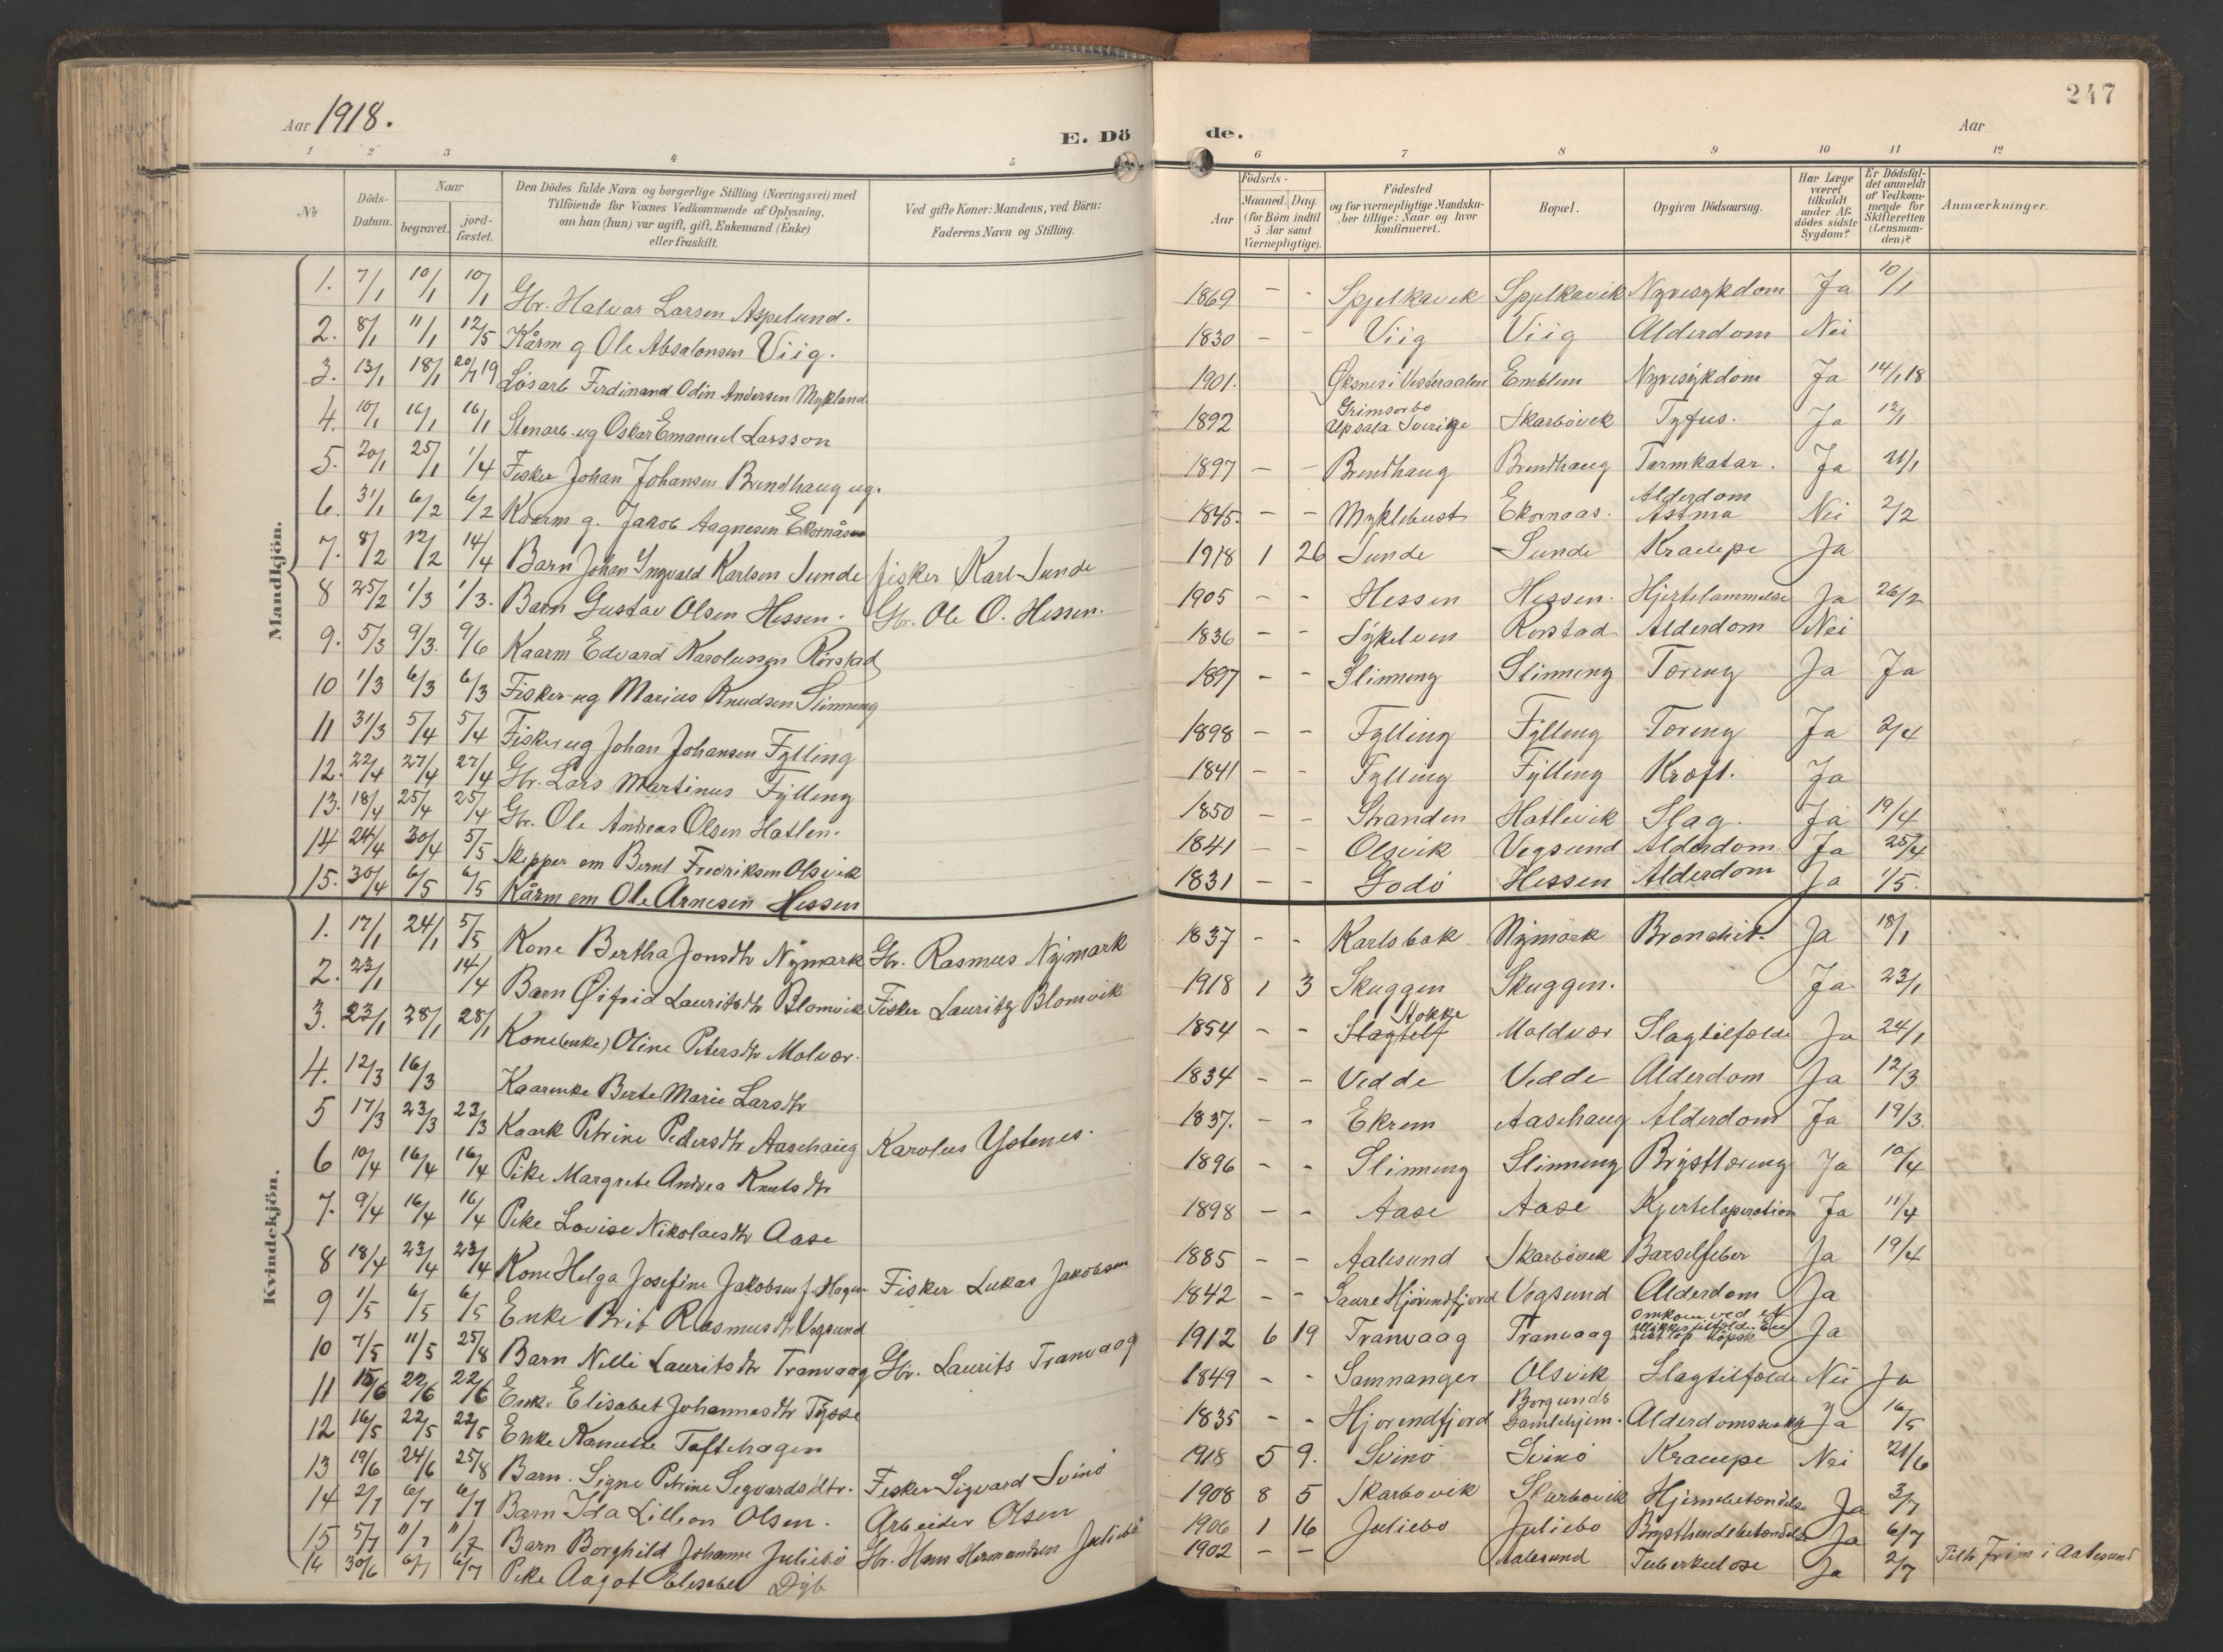 247
Aar 1918.
E. Döde.
Aar
1 2 3 4 5 6 7 8 9 10 11 12
№
Döds-Datum.
Naar
begravet.
jord-fæstet.
Den Dödes fulde Navn og borgerlige Stilling (Næringsvei) med
Tilföiende for Voxnes Vedkommende af Oplysning,
om han (hun) var ugift, gift, Enkemand (Enke)
eller fraskilt.
Ved gifte Koner: Mandens, ved Börn:
Faderens Navn og Stilling.
Födsels-
Aar
Maaned. Dag.
(for Börn indtil
5 Aar samt
Værnepligtige).
Födested
og for værnepligtige Mandska-
ber tillige: Naar og hvor
konfirmeret.
Bopæl.
Opgiven Dödsaarsag.
Har Læge
været
tilkaldt
under Af-
dödes sidste
Sygdom?
Er Dödsfal-
det anmeldt
af Vedkom-
mende for
Skifteretten
(Lensman-
den)?
Anmærkninger.
Mandkjön.
1. 7/1 10/1 10/1 Gbr. Halvar Larsen Aspelund. 1869 - - Spjelkavik Spjelkavik Nyresykdom Ja 10/1
2. 8/1 11/1 12/5 Kårm g Ole Absalonsen Viig. 1830 - - Viig Viig Alderdom Nei
3. 13/1 18/1 20/7 19 Løsarb Ferdinand Odin Andersen Mykland 1901. Øksnes i Vesteraalen Emblem Nyresykdom Ja 14/1 18
4. 10/1 16/1 16/1 Stenarb. ug Oskar Emanuel Larsson 1892 Grimsorbo Upsala Sverige Skarbövik Tyfus. Ja 12/1
5. 20/1 25/1 1/4 Fisker Johan Johansen Brendhaug ug. 1897 - - Brendhaug Brendhaug Tarmkatar. Ja 21/1
6. 31/1 6/2 6/2 Kaarm g. Jakob Aagnesen Ekornåsen 1845. - - Myklebust Ekornaas. Alderdom Astma Nei 2/2
7. 8/2 12/2 14/4 Barn Johan Ingvald Karlsen Sunde fisker Karl Sunde 1918 1 26 Sunde Sunde Krampe Ja
8 25/2 1/3 1/3. Barn Gustav Olsen Hessen. Gbr. Ole O. Hessen. 1905 - - Hessen Hessen. Hjertelammelse Ja 26/2
9. 5/3 9/3. 9/6 Kaarm Edvard Karolussen Rörstad 1836 - - Sykelven Rorstad Alderdom Nei
10 1/3 6/3 6/3 Fisker ug Marius Knudsen Slinning 1897 - - Slinning Slinning Tæring Ja Ja
11 31/3 5/4 5/4 Fisker ug Johan Johansen Fylling 1898 - - Fylling Fylling Tæring Ja 2/4
12. 22/4 27/4 27/4 Gbr. Lars Martinus Fylling 1841 - - Fylling Fylling Kræft. Ja
13. 18/4 25/4 25/4 Gbr. Ole Andreas Olsen Hatlen. 1850 - - Stranden Hatlevik Slag. Ja 19/4
14 24/4 30/4 5/5 Skipper em Bernt Fredriksen Olsvik 1841 - - Olsvik Vegsund Alderdom Ja 25/4
15. 30/4 6/5 6/5 Kårm em Ole Arnesen Hessen 1831 - - Godö Hessen Alderdom Ja 1/5.
Kvindekjön.
1. 17/1 24/1 5/5 Kone Bertha Jonsdtr Nymark Gbr. Rasmus Nymark 1837 - - Karlsbak Nymark Bronchit. Ja 18/1
2. 23/1 14/4 Barn Lauritsdtr Blomvik Fisker Lauritz Blomvik 1918 1 3 Skuggen Skuggen. Ja 23/1
3. 23/1 28/1 28/1 Kone (enke) Oline Petersdtr Molvær. 1854 - - Slagtilf Stokke Moldvær Slagtilfælde Ja 24/1
4. 12/3 16/3 Kaarenke Berte Marie Larsdtr 1834 - - Vedde Vedde Alderdom Ja 12/3
5 17/3 23/3 23/3 Kaark Petrine Pedersdtr Aasehaug Karolus Ystenes. 1837. - - Ekrem Aasehaug Alderdom Ja 19/3.
6 10/4 16/4 16/4 Pike Margrete Andrea Knutsdtr 1896 - - Slinning Slinning Brysttæring Ja 10/4
7. 9/4 16/4 16/4 Pike Lovise Nikolaisdtr Aase 1898 - - Aase Aase Kjerteloperation Ja 11/4
8 18/4 23/4 23/4 Kone Helga Josefine Jakobsen f. Hagen Fisker Lukas Jakobsen 1885 - - Aalesund Skarbövik Barselfeber Ja 19/4
9 1/5 6/5 6/5 Enke Brit Rasmusdtr Vegsund 1842 - - Saure Hjörendfjord Vegsund Alderdom Ja
10 7/5 11/5 25/8 Barn Nelli Lauritsdtr Tranvaag Gbr. Laurits Tranvaag 1912 6 19 Tranvaag Tranvaag Omkom ved et Ja
11 15/6 22/6 22/6 Enke Elisabet Johannesdtr Tysse 1849 - - Samnanger Olsvik Slagtilfælde Nei Ja
12 16/5 22/5 22/5 Enke Tafthagen 1835 - - Hjorendfjord Borgunds Gamlehjem. Ja 16/5
13 19/6 24/6 25/8 Barn. Signe Petrine Sigvardsdtr. Fisker Sigvard Svinö 1918 5 9. Svinö Svinö Krampe Nei 21/6
14 2/7 6/7 6/7 Barn Ida Lillian Olsen. Arbeider Olsen 1908 8 5 Skarbovik Skarbovik Hjernebetændelse Ja 3/7
15 5/7 11/7 11/7 Barn Borghild Johanne Juliebö Gbr. Hans Hermansen Juliebö 1906 1 16 Juliebo Juliebo Brysthindebetændelse Ja 6/7
16 30/6 6/7 6/7 Pike Aagot Elisabet Dyb 1902 - - Aalesund Tuberkulose Ja 2/7 i Aalesund